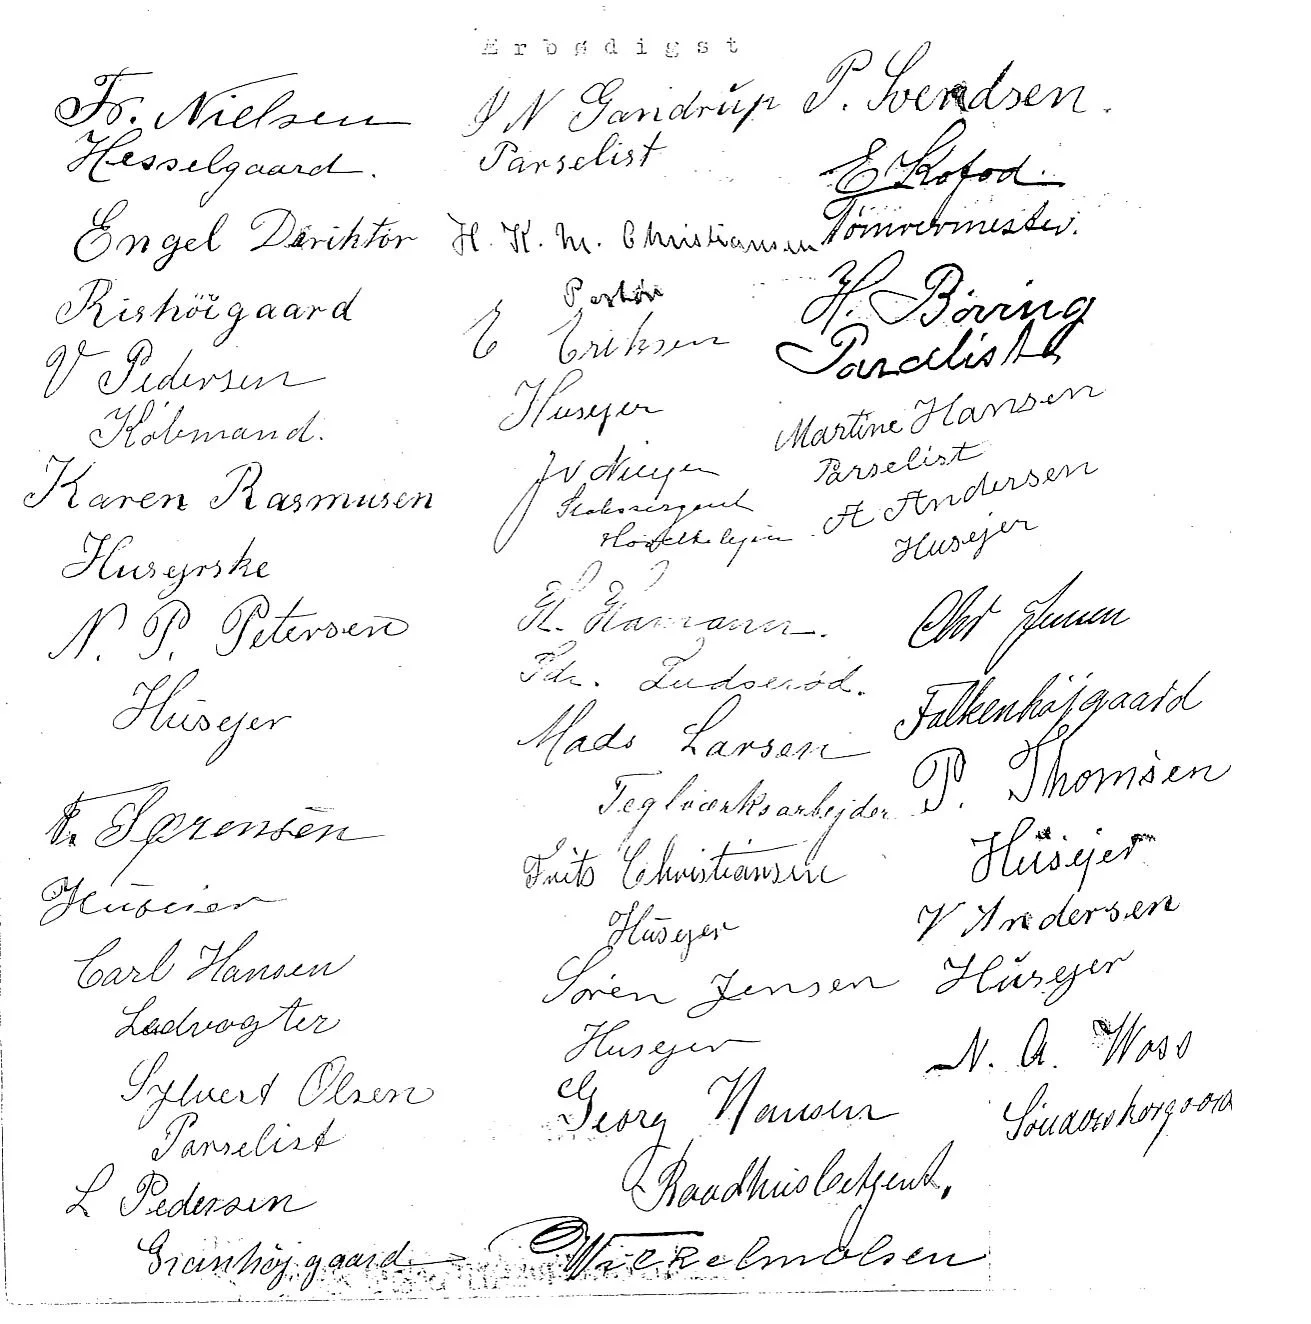 Ærbødigst
Fr. Nielsen
Hesselgaard.
Engel Deriktör
Rishöigaard
V Pedersen
Købmand.
Karen Rasmusen
Husejrske
N. P. Petersen
Husejer
F. Sørensen
Huseier
Carl Hansen
Ledvogter
Sylvert Olsen
Parselist
L Pedersen
Granhøjgaard
N Gandrup
Parselist
H. K. M. Christiansen
E Eriksen
Husejer
H. Hamann.
Pdr. Ludserød.
Mads Larsen
Teglværksarbejder
Frits Christiansen
Husejer
Sören Jensen
Husejer
Georg Hansen
Raadhusbetjent.
Wilhelm Olsen
P. Svendsen.
E Kofod.
Tömrermester.
H. Böving
Parcelist
Martine Hansen
Parselist
A Andersen
Husejer
Chr Jensen
Falkenhöjgaard
P. Thomsen
Husejer
V Andersen
Husejer
N. A. Woss